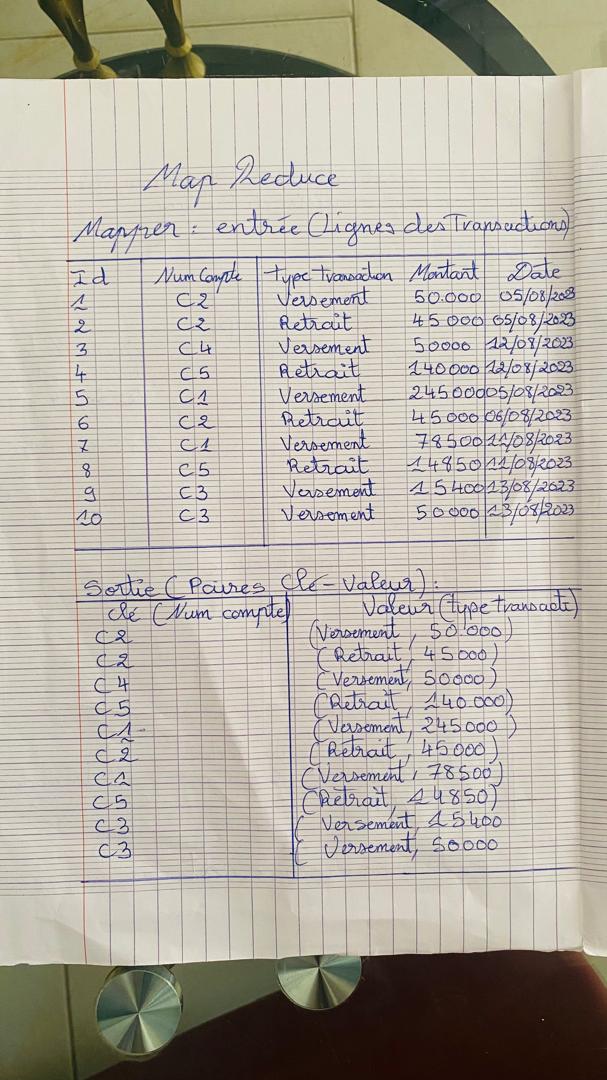 Map Reduce
Mapper : entrée (Lignes des Transactions)
Id Num Compte type transaction Montant Date
1 C2 Versement 50.000 05/08/2023
2 C2 Retrait 45 000 05/08/2023
3 C4 Versement 50000 12/08/2023
4 C5 Retrait 140000 12/08/2023
5 C1 Versement 245000 05/08/2023
6 C2 Retrait 45000 06/08/2023
7 C1 Versement 78500 11/08/2023
8 C5 Retrait 14850 11/08/2023
9 C3 Versement 15400 13/08/2023
10 C3 Versement 50000 13/08/2023
Sortie (Paires Clé-Valeur) :
Clé (Num compte) Valeur (type transacti)
C2 (Versement, 50.000)
C2 (Retrait, 45000)
C4 (Versement, 50000)
C5 (Retrait, 140.000)
C1 (Versement, 245000)
C2 (Retrait, 45000)
C1 (Versement, 78500)
C5 (Retrait, 14850)
C3 ( Versement, 15400
C3 ( Versement, 50000